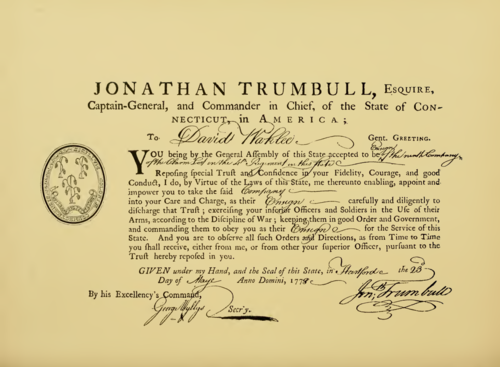 JONATHAN TRUMBULL, ESQUIRE,
Captain-General, and Commander in Chief, of the State of CON-
NECTICUT, in AMERICA;
To David Waklee Gent. GREETING.
YOU being by the General Assembly of this State accepted to be Ensign of the ninth Company
of the Alarm List in the 4th Regiment in this State
Reposing special Trust and Confidence in your Fidelity, Courage, and good
Conduct, I do, by Virtue of the Laws of this State, me thereunto enabling, appoint and
impower you to take the said Company
into your Care and Charge, as their Ensign carefully and diligently to
discharge that Trust; exercising your inferior Officers and Soldiers in the Use of their
Arms, according to the Discipline of War; keeping them in good Order and Government,
and commanding them to obey you as their Ensign for the Service of this
State. And you are to observe all such Orders and Directions, as from Time to Time
you shall receive, either from me, or from other your superior Officer, pursuant to the
Trust hereby reposed in you.
GIVEN under my Hand, and the Seal of this State, in Hartford the 28
Day of May Anno Domini, 177
By his Excellency's Command,
Jonth Trumbull
George Wyllys Secr'y.